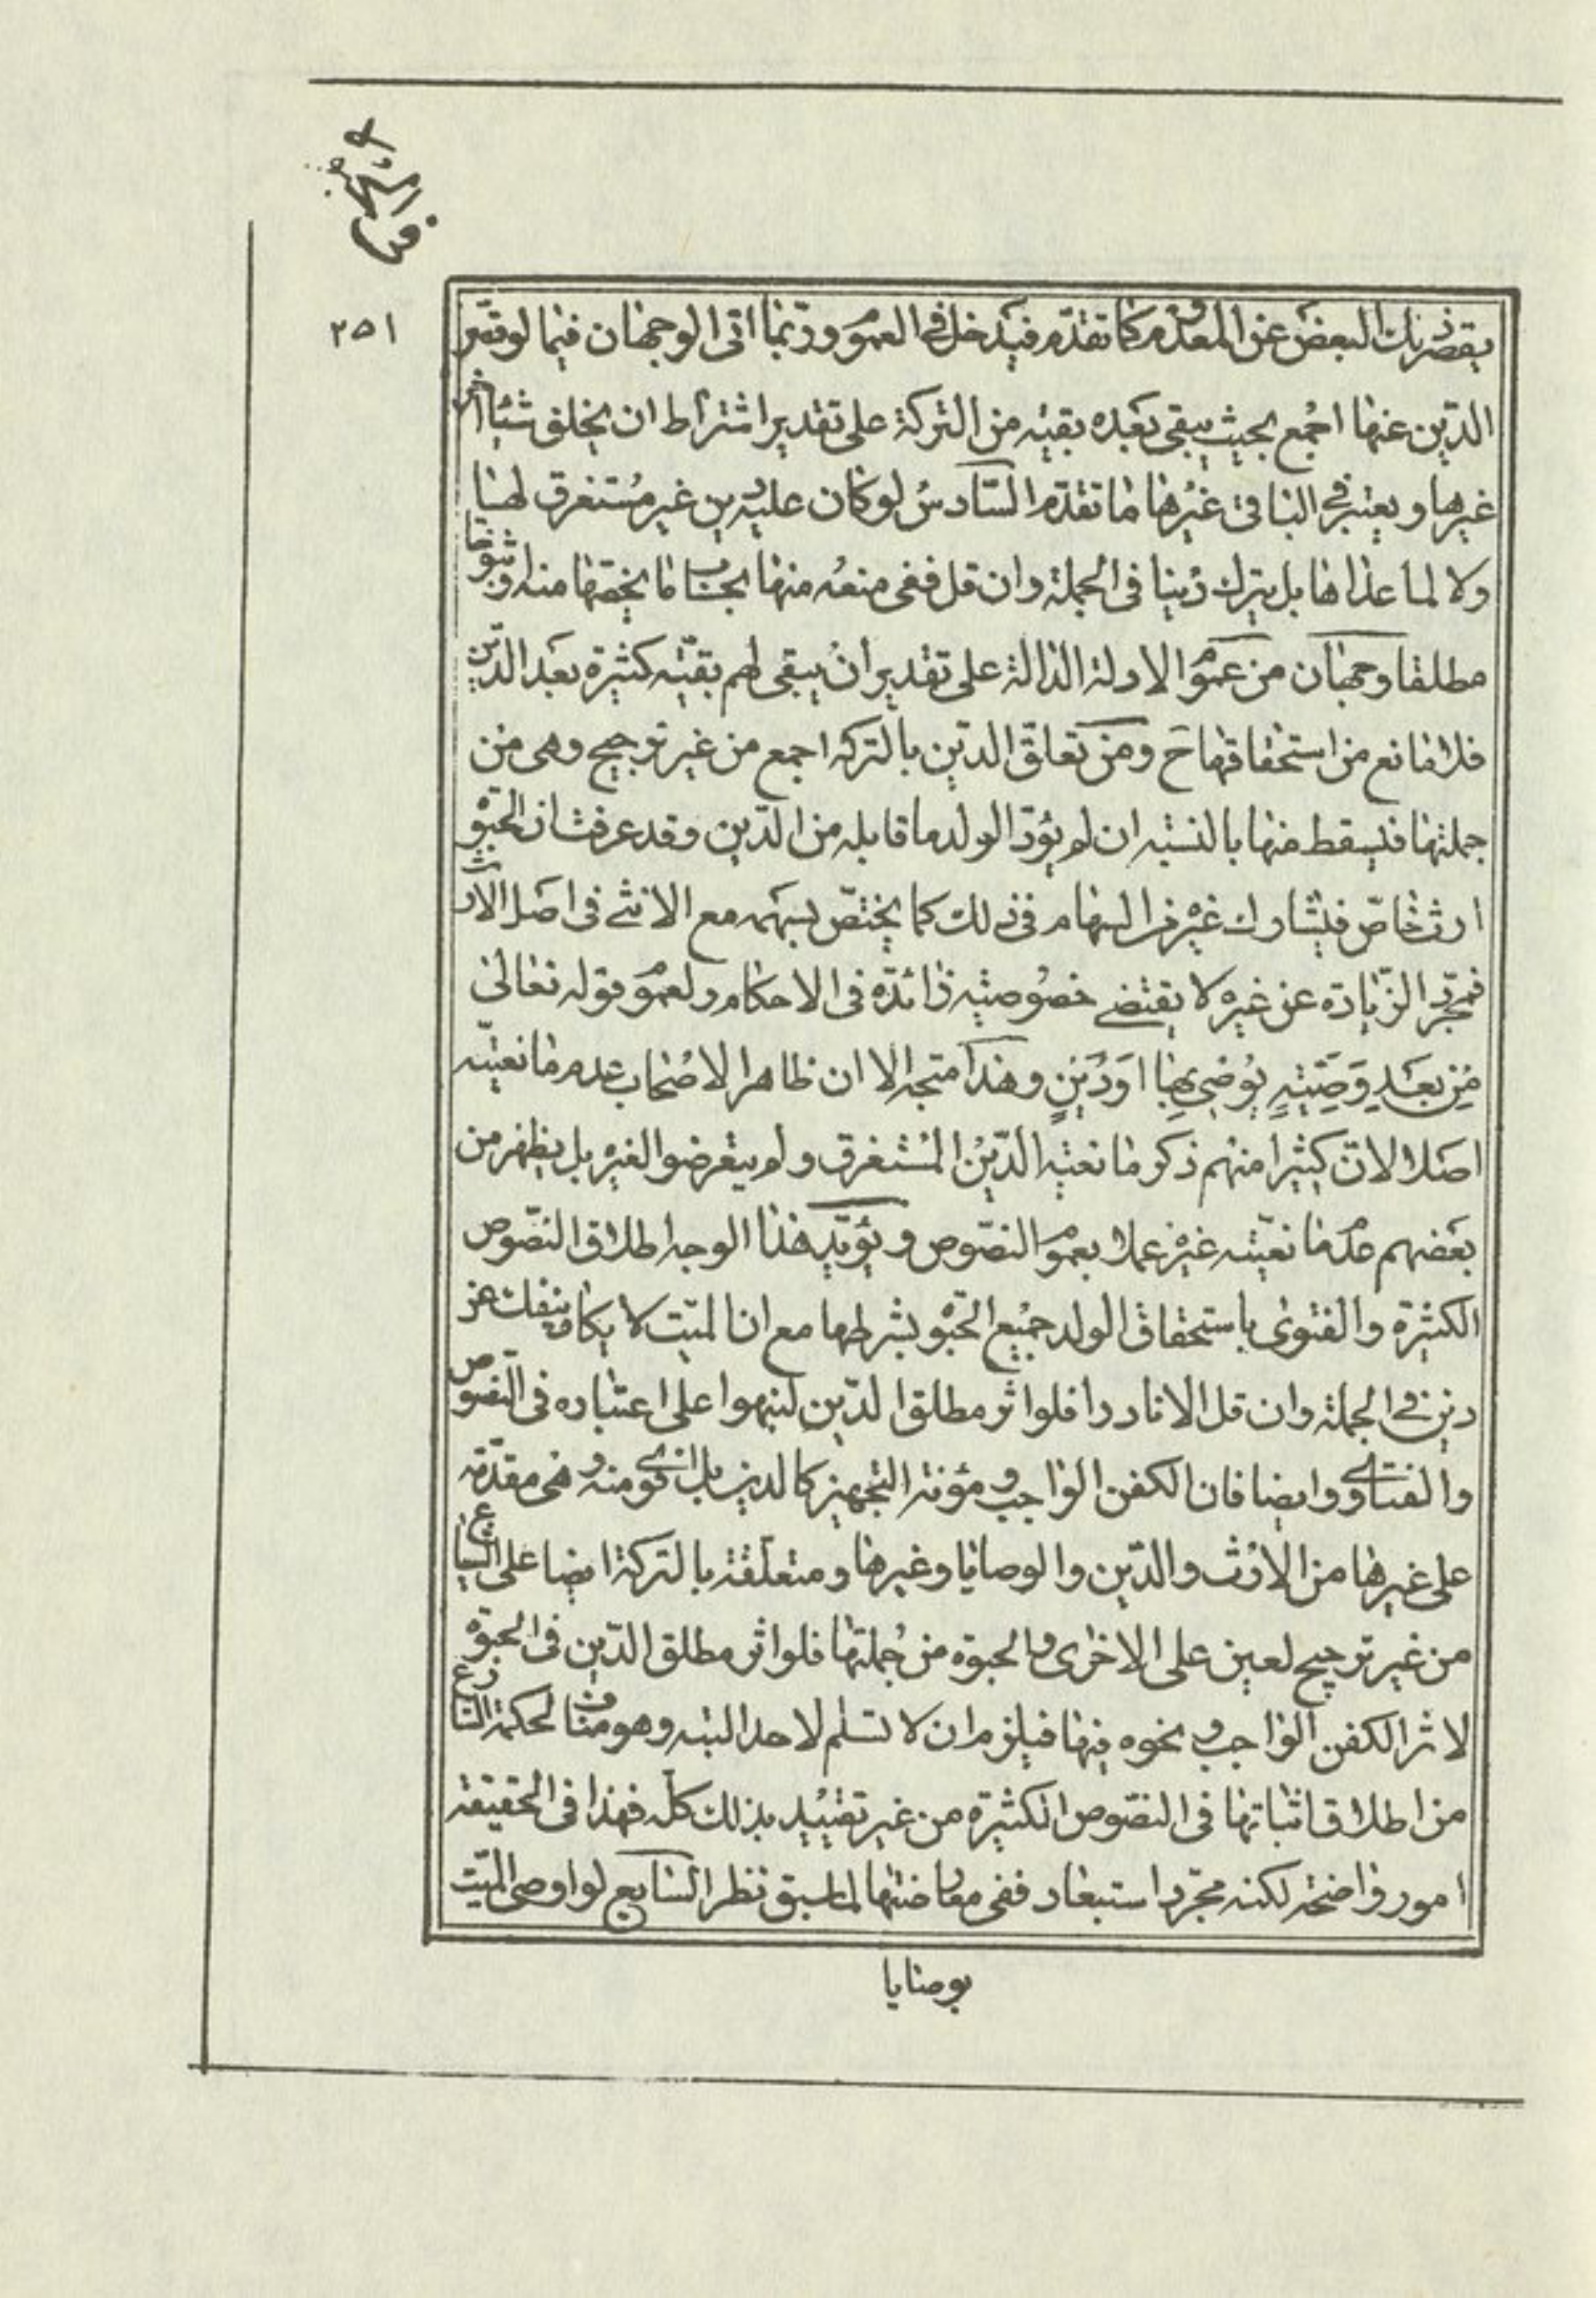 ٢٥١
يقصر بذلك البعض عن المعدوم كما تقدم فيدخل في العموم وربما اتى الوجهان فيما لو قصر
الدين عنها اجمع بحيث يبقى بعده بقيه من التركة على تقدير اشتراط ان يخلف شيئا اخر
غيرها ويعتبر في الباقى غيرها ما تقدم السادس لو كان عليه دين غير مستغرق لها
ولا لما عداها بل يترك دينا في الجملة وان قل ففى منعه منها بحساب ما يخصها منه او ثبوتها
مطلقا وجهان من عموم الادلة الدالة على تقدير أن يبقى لهم بقيّه كثيرة بعد الدّين
فلا مانع من استحقاقها ح ومن تعلق الدّين بالتركه اجمع من غير ترجيح وهى من
جملتها فيسقط منها بالنسبه ان لم يؤدّ الولد ما قابله من الدّين وقد عرفت ان الحبوة
ارث خاصّ فيشارك غيره من السهام فى ذلك كما يختصّ بسهمه مع الانثى فى اصل الارث
فمجرّد الزّيادة عن غيره لا يقتضى خصوصيّه زائدة فى الاحكام ولعموم قوله تعالى
مِن بَعدِ وَصِيّةٍ يُوصى بِها اَو دَينٍ وهذا متجه الا ان ظاهر الاصحاب عدم مانعيّه
اصلا لانّ كثيرا منهم ذكر مانعيّه الدّين المستغرق ولم يتعرضوا لغيره بل يظهر من
بعضهم عدم مانعيّته غيره عملا بعموم النصّوص ويؤيّد هذا الوجه اطلاق النصّوص
الكثيرة والفتوى باستحقاق الولد جميع الحبوة بشرطها مع ان الميّت لا يكاد ينفك عن
دين في الجملة وان قل الا نادرا فلو اثر مطلق الدّين لنبهوا على اعتباره فى النصوص
والفتاوى وايضا فان الكفن الواجب ومؤنة التجهيز كالدين بل اقوى منه وهى مقدّمة
على غيرها من الارث والدّين والوصايا وغيرها ومتعلّقة بالتركة ايضا على الشياع
من غير ترجيح لعين على الاخرى والحبوة من جملتها فلو اثر مطلق الدّين فى الحبوة
لاثر الكفن الواجب ونحوه فيها فيلزم ان لا تسلم لاحد البتّه وهو مناف لحكمة الشارع
من اطلاق اثباتها فى النصّوص الكثيرة من غير تقييد بذلك كلّه فهذا فى الحقيقة
امور واضحة لكنه مجرّد استبعاد ففى معارضتها لما سبق نظر السّابع لو اوصى الميّت
بوصايا